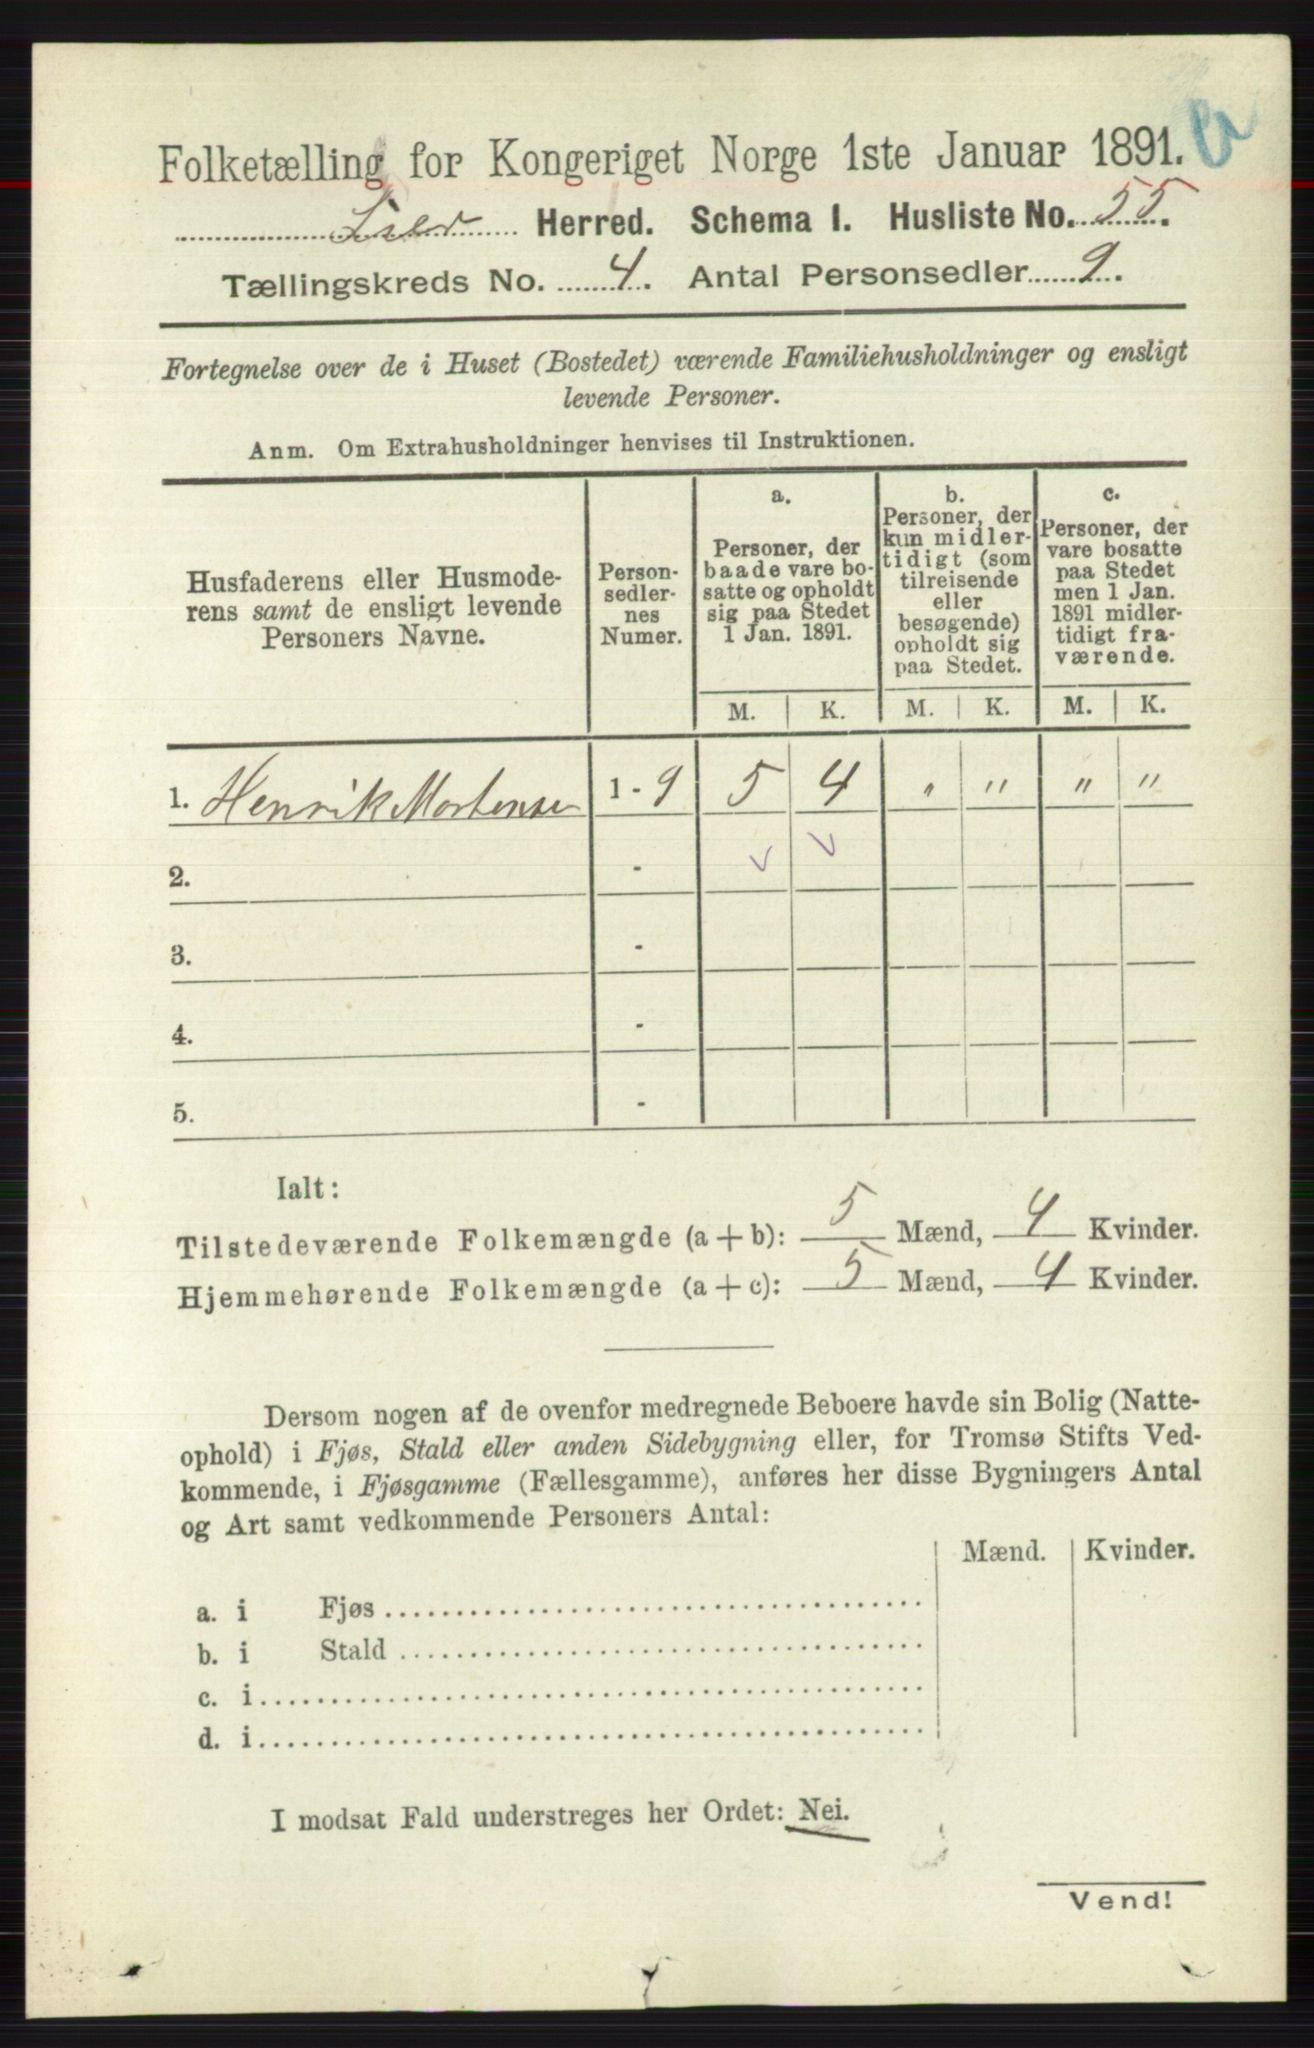 Folketælling for Kongeriget Norge 1ste Januar 1891.
Lier Herred. Schema 1. Husliste No. 55.
Tællingskreds No. 4. Antal Personsedler 9.
Fortegnelse over de i Huset (Bostedet) værende Familiehusholdninger og ensligt
levende Personer.
Anm. Om Extrahusholdninger henvises til Instruktionen.
Husfaderens eller Husmode-
rens samt de ensligt levende
Personers Navne.
Person-
sedler-
nes
Numer.
a.
Personer, der
baade vare bo-
satte og opholdt
sig paa Stedet
1 Jan. 1891.
b.
Personer, der
kun midler-
tidigt (som
tilreisende
eller
besøgende)
opholdt sig
paa Stedet.
c.
Personer, der
vare bosatte
paa Stedet
men 1 Jan.
1891 midler-
tidigt fra-
værende.
M. K. M. K. M. K.
1. Henrik Mortensen 1 - 9 5 4 " " " "
2. - v v
3. -
4. -
5. -
Ialt:
Tilstedeværende Folkemængde (a + b): 5 Mænd, 4 Kvinder.
Hjemmehørende Folkemængde (a + c): 5 Mænd, 4 Kvinder.
Dersom nogen af de ovenfor medregnede Beboere havde sin Bolig (Natte-
ophold) i Fjøs, Stald eller anden Sidebygning eller, for Tromsø Stifts Ved-
kommende, i Fjøsgamme (Fællesgamme), anføres her disse Bygningers Antal
og Art samt vedkommende Personers Antal:
Mænd. Kvinder.
a. i Fjøs
b. i Stald
c. i
d. i
I modsat Fald understreges her Ordet: Nei.
Vend!